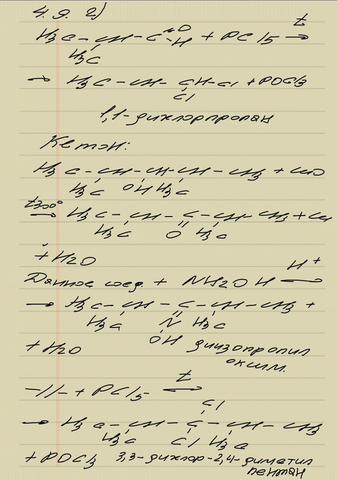 4.9. 2)
H3C-CH-C=O-H + PCl5 →t
H3C
→ H3C-CH-CH-Cl + POCl3
Cl
1,1-дихлорпропан
Кетон:
H3C-CH-CH-CH-CH3 + CuO
H3C OH H3C
t300° → H3C-CH-C-CH-CH3 + Cu
H3C O H3C
+ H2O
Данное соед. + NH2OH H+ →
→ H3C-CH-C-CH-CH3 +
H3C N H3C
+ H2O OH диизопропил
оксим.
-//- + PCl5 t →
Cl
→ H3C-CH-C-CH-CH3
H3C Cl H3C
+ POCl3 3,3-дихлор-2,4-диметил
пентан